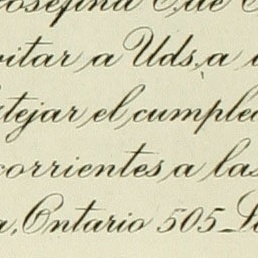 Josefina C. de
vitar a Uds, à
tejar el cumple
corrientes a las
a, Ontario 505_